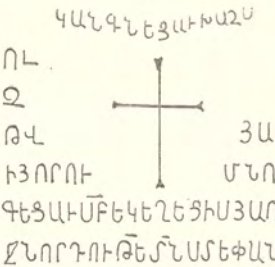 ԿԱՆԳՆԵՑԱՒԽԱՉՍ
ՈԼ
Զ
ԹՎ ՅԱ
ԻՅՈՐՈՒ ՄՆՈ
ԳԵՑԱՒՍԲԵԿԵՂԵՑԻՍՅԱՌ
ՋՆՈՐԴՈՒԹԵՏՆՍՏԵՓԱՆ